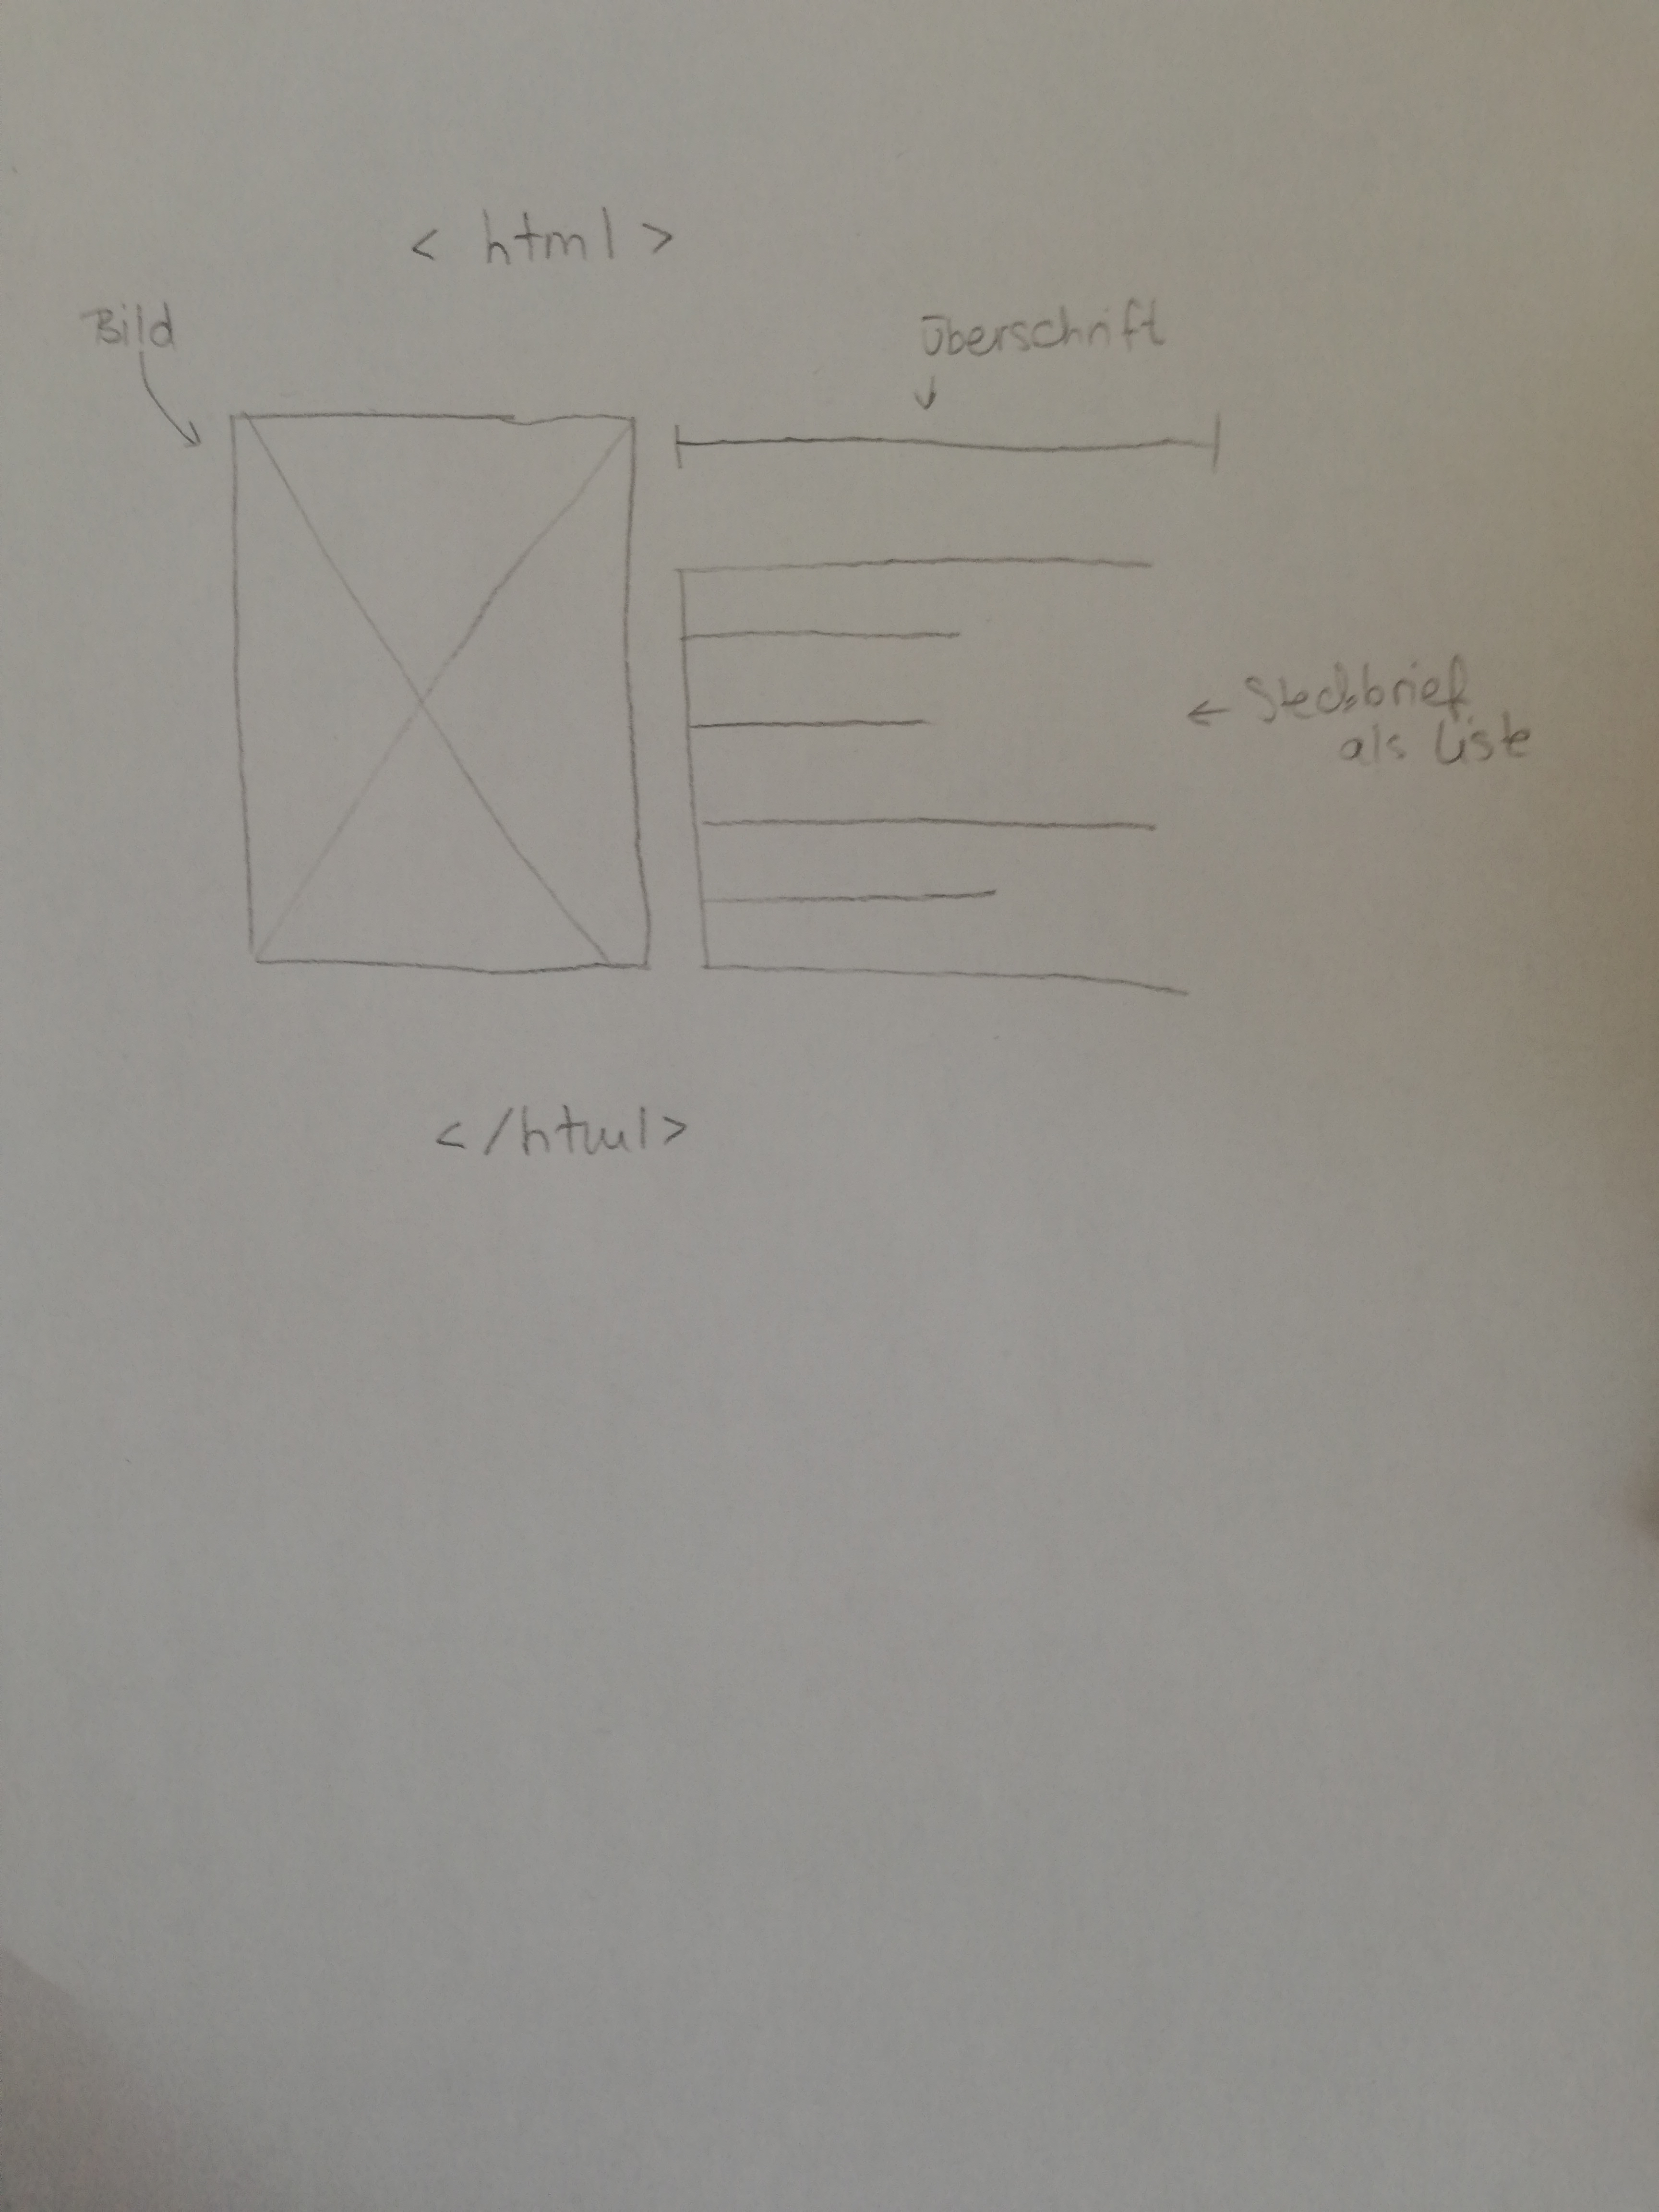 < html >
Bild
Überschrift
Steckbrief
als Liste
</html>